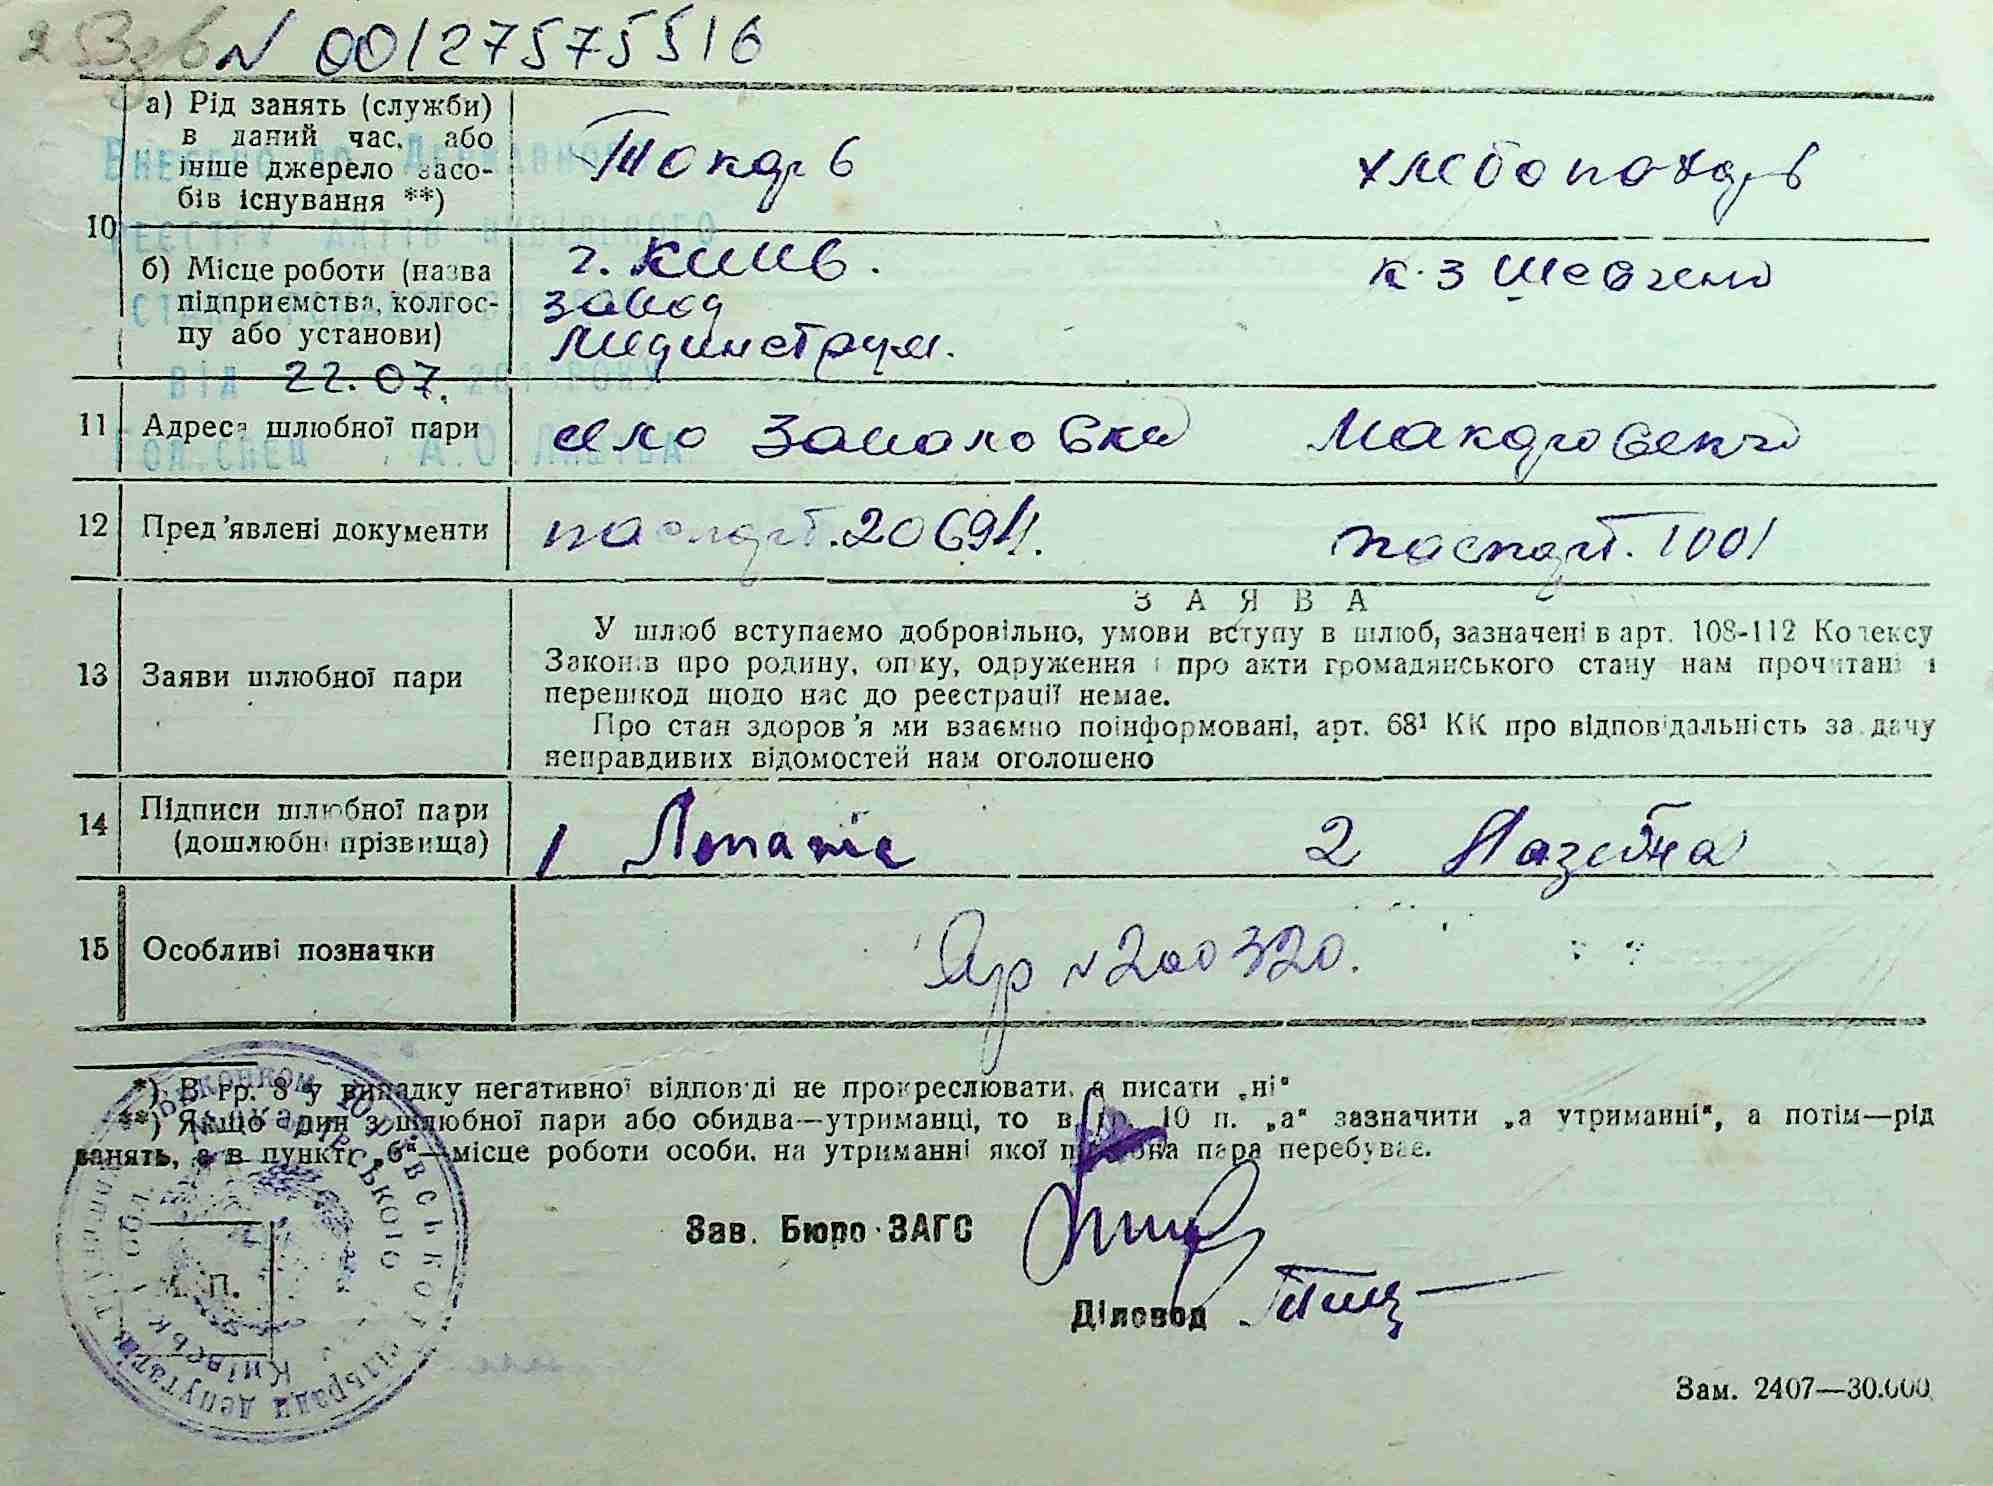 № 00127575516
а) Рід занять (служби)
в даний час, або
інше джерело засо-
бів існування **)
Токарь
хлебопекарь
Внесено до Державного
реєстру актів цивільного
10
б) Місце роботи (назва
підприємства, колгос-
пу або установи)
г. Киев.
завод
Мединструм.
к-з Шевченко
від 22.07.
11 Адреса шлюбної пари
село Макаровский
А.О.
12 Пред'явлені документи
паспорт. паспорт. 1001
13 Заяви шлюбної пари
ЗАЯВА
У шлюб вступаємо добровільно, умови вступу в шлюб, зазначені в арт. 108-112 Кодексу
Законів про родину, опіку, одруження і про акти громадянського стану нам прочитані і
перешкод щодо нас до реєстрації немає.
Про стан здоров'я ми взаємно поінформовані, арт. 68¹ КК про відповідальність за дачу
неправдивих відомостей нам оголошено
14 Підписи шлюбної пари
(дошлюбні прізвища)
1 2
15 Особливі позначки
№ 200320.
*) В гр. 8 у випадку негативної відповіді не прокреслювати, а писати „ні"
**) Якщо один з шлюбної пари або обидва—утриманці, то в гр. 10 п. „а" зазначити „а утриманні", а потім—рід
занять, а в пункті „б"—місце роботи особи, на утриманні якої шлюбна пара перебуває.
Макарівського
сільради депутатів
Київськ обл.
М. П.
Зав. Бюро ЗАГС
Діловод
Зам. 2407—30.000